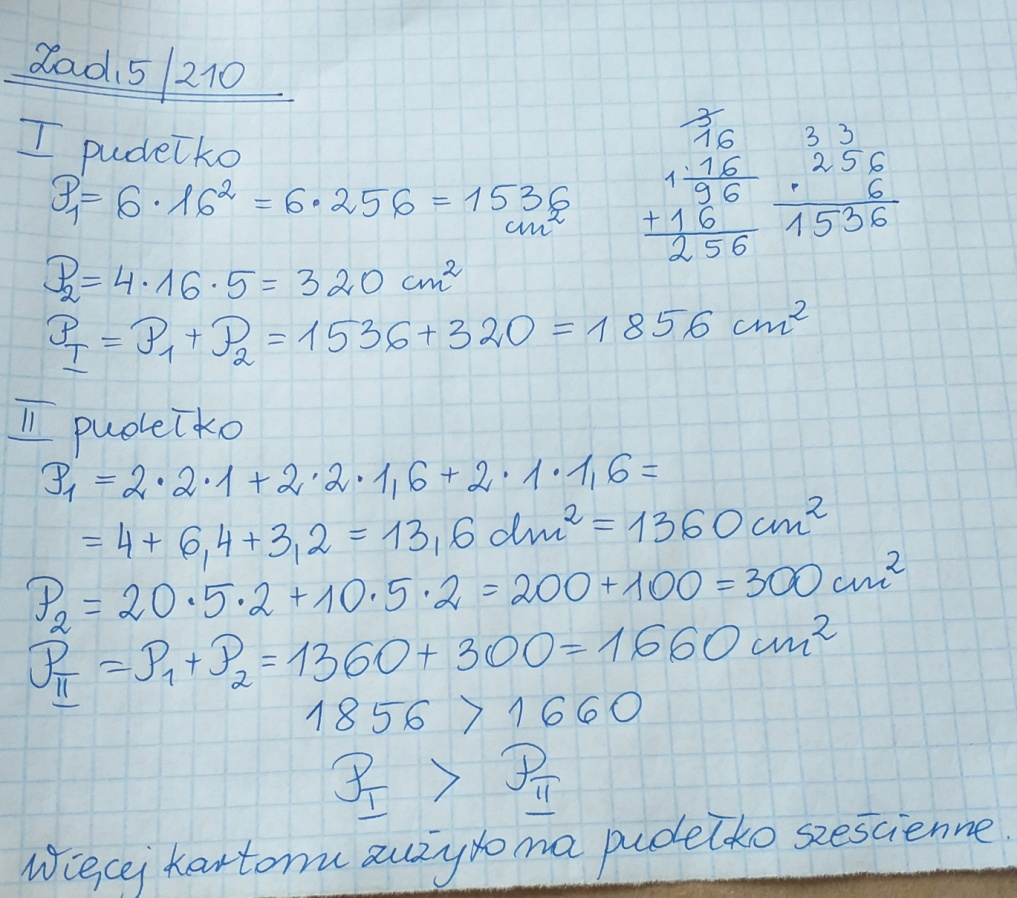 Zad.5/210
I pudełko
P₁= 6·16² = 6·256 = 1536 cm²
3
16
·16
1 96
+16
256
3 3
256
· 6
1536
P₂= 4·16·5 = 320 cm²
P_I = P₁ + P₂ = 1536+320 = 1856 cm²
II pudełko
P₁ = 2·2·1 + 2·2·1,6 + 2·1·1,6 =
= 4 + 6,4+3,2 = 13,6 dm² = 1360 cm²
P₂ = 20·5·2 +10·5·2 = 200+100 = 300 cm²
P_II = P₁ + P₂ = 1360+ 300 = 1660 cm²
1856 > 1660
P_I > P_II
Więcej kartonu zużyto na pudełko sześcienne.